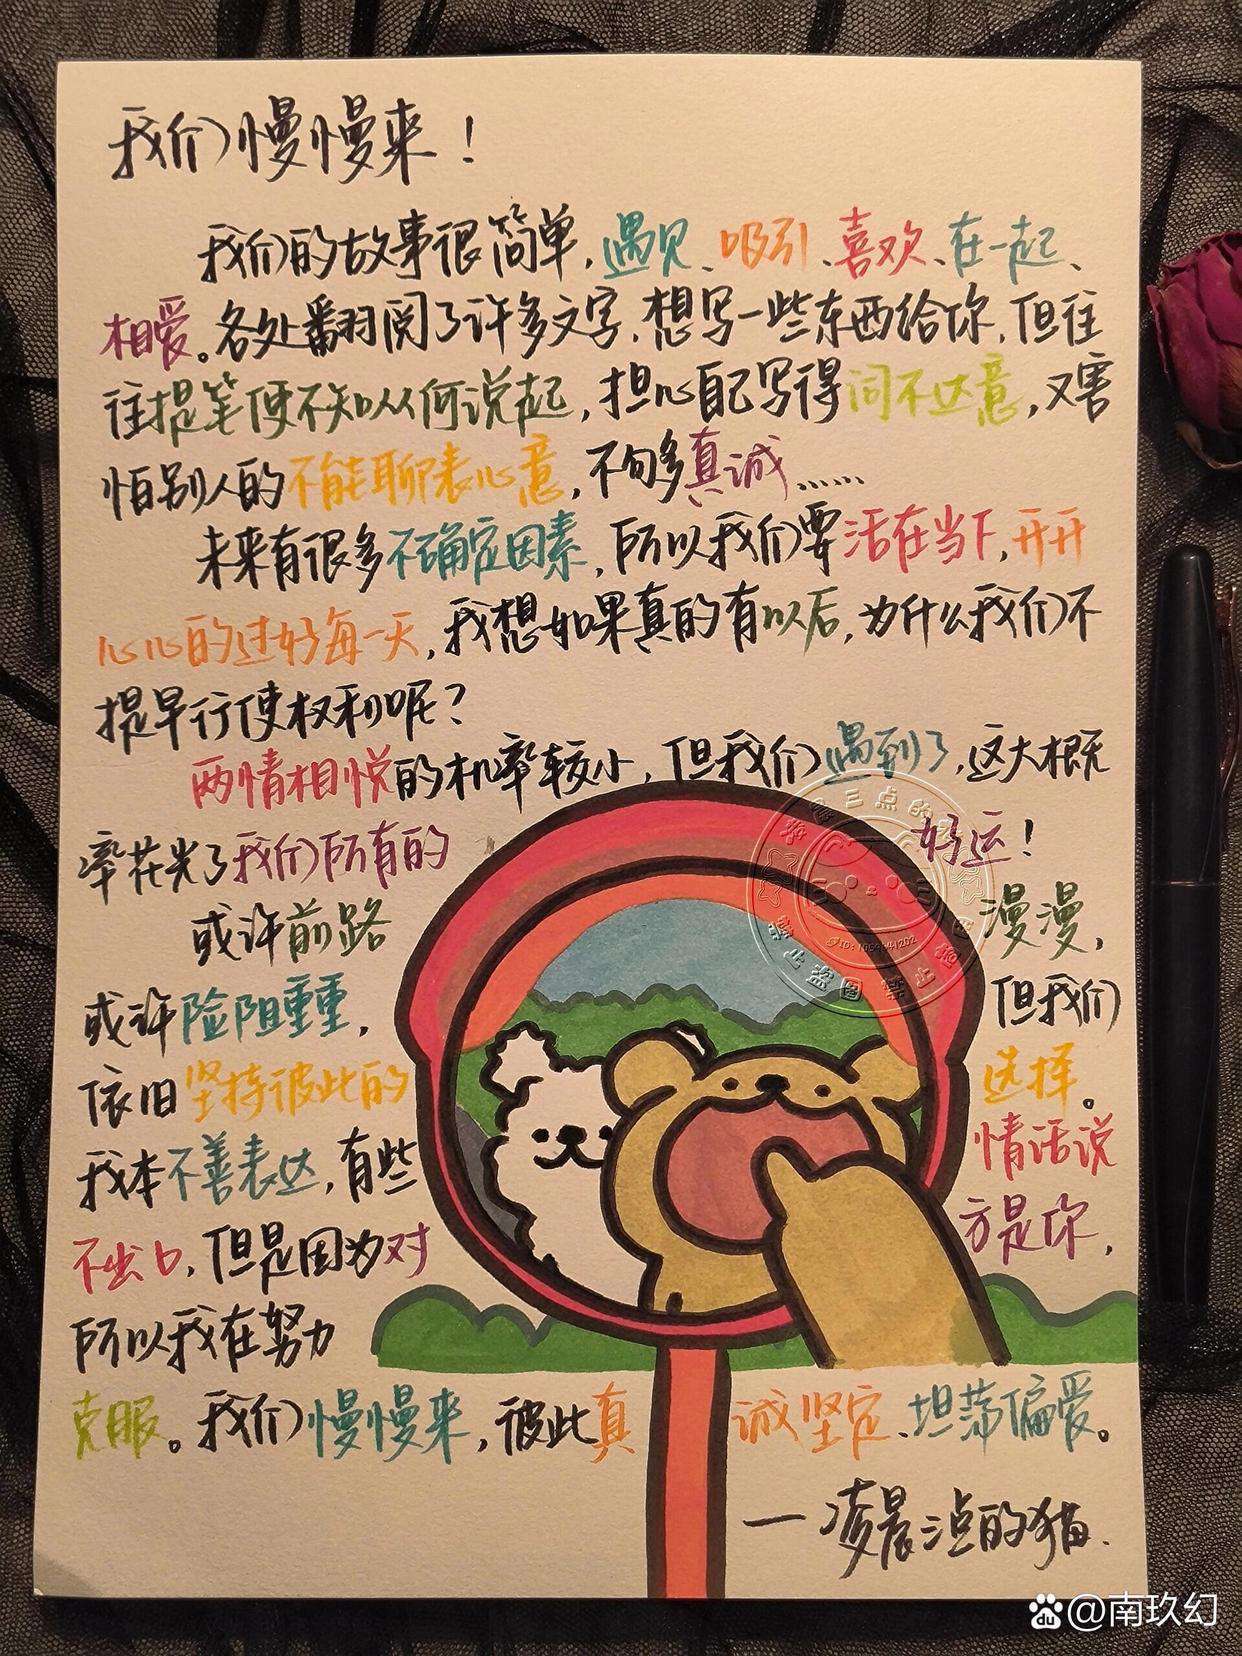 我们慢慢来！
我们的故事很简单，遇见、吸引、喜欢、在一起、
相爱。各处翻阅了许多文字，想写一些东西给你，但往
往提笔便不知从何说起，担心自己写得词不达意，又害
怕别人的不能聊表心意，不够多真诚……
未来有很多不确定因素，所以我们要活在当下，开开
心心的过好每一天，我想如果真的有以后，为什么我们不
提早行使权利呢？
两情相悦的机率较小，但我们遇到了，这大概
率花光了我们所有的好运！
或许前路漫漫，
或许险阻重重，但我们
依旧坚持彼此的选择。
我本不善表达，有些情话说
不出口，但是因为对方是你，
所以我在努力
克服。我们慢慢来，彼此真诚坚定、坦荡偏爱。
—凌晨三点的猫.
三点的
禁止盗图
@南玖幻